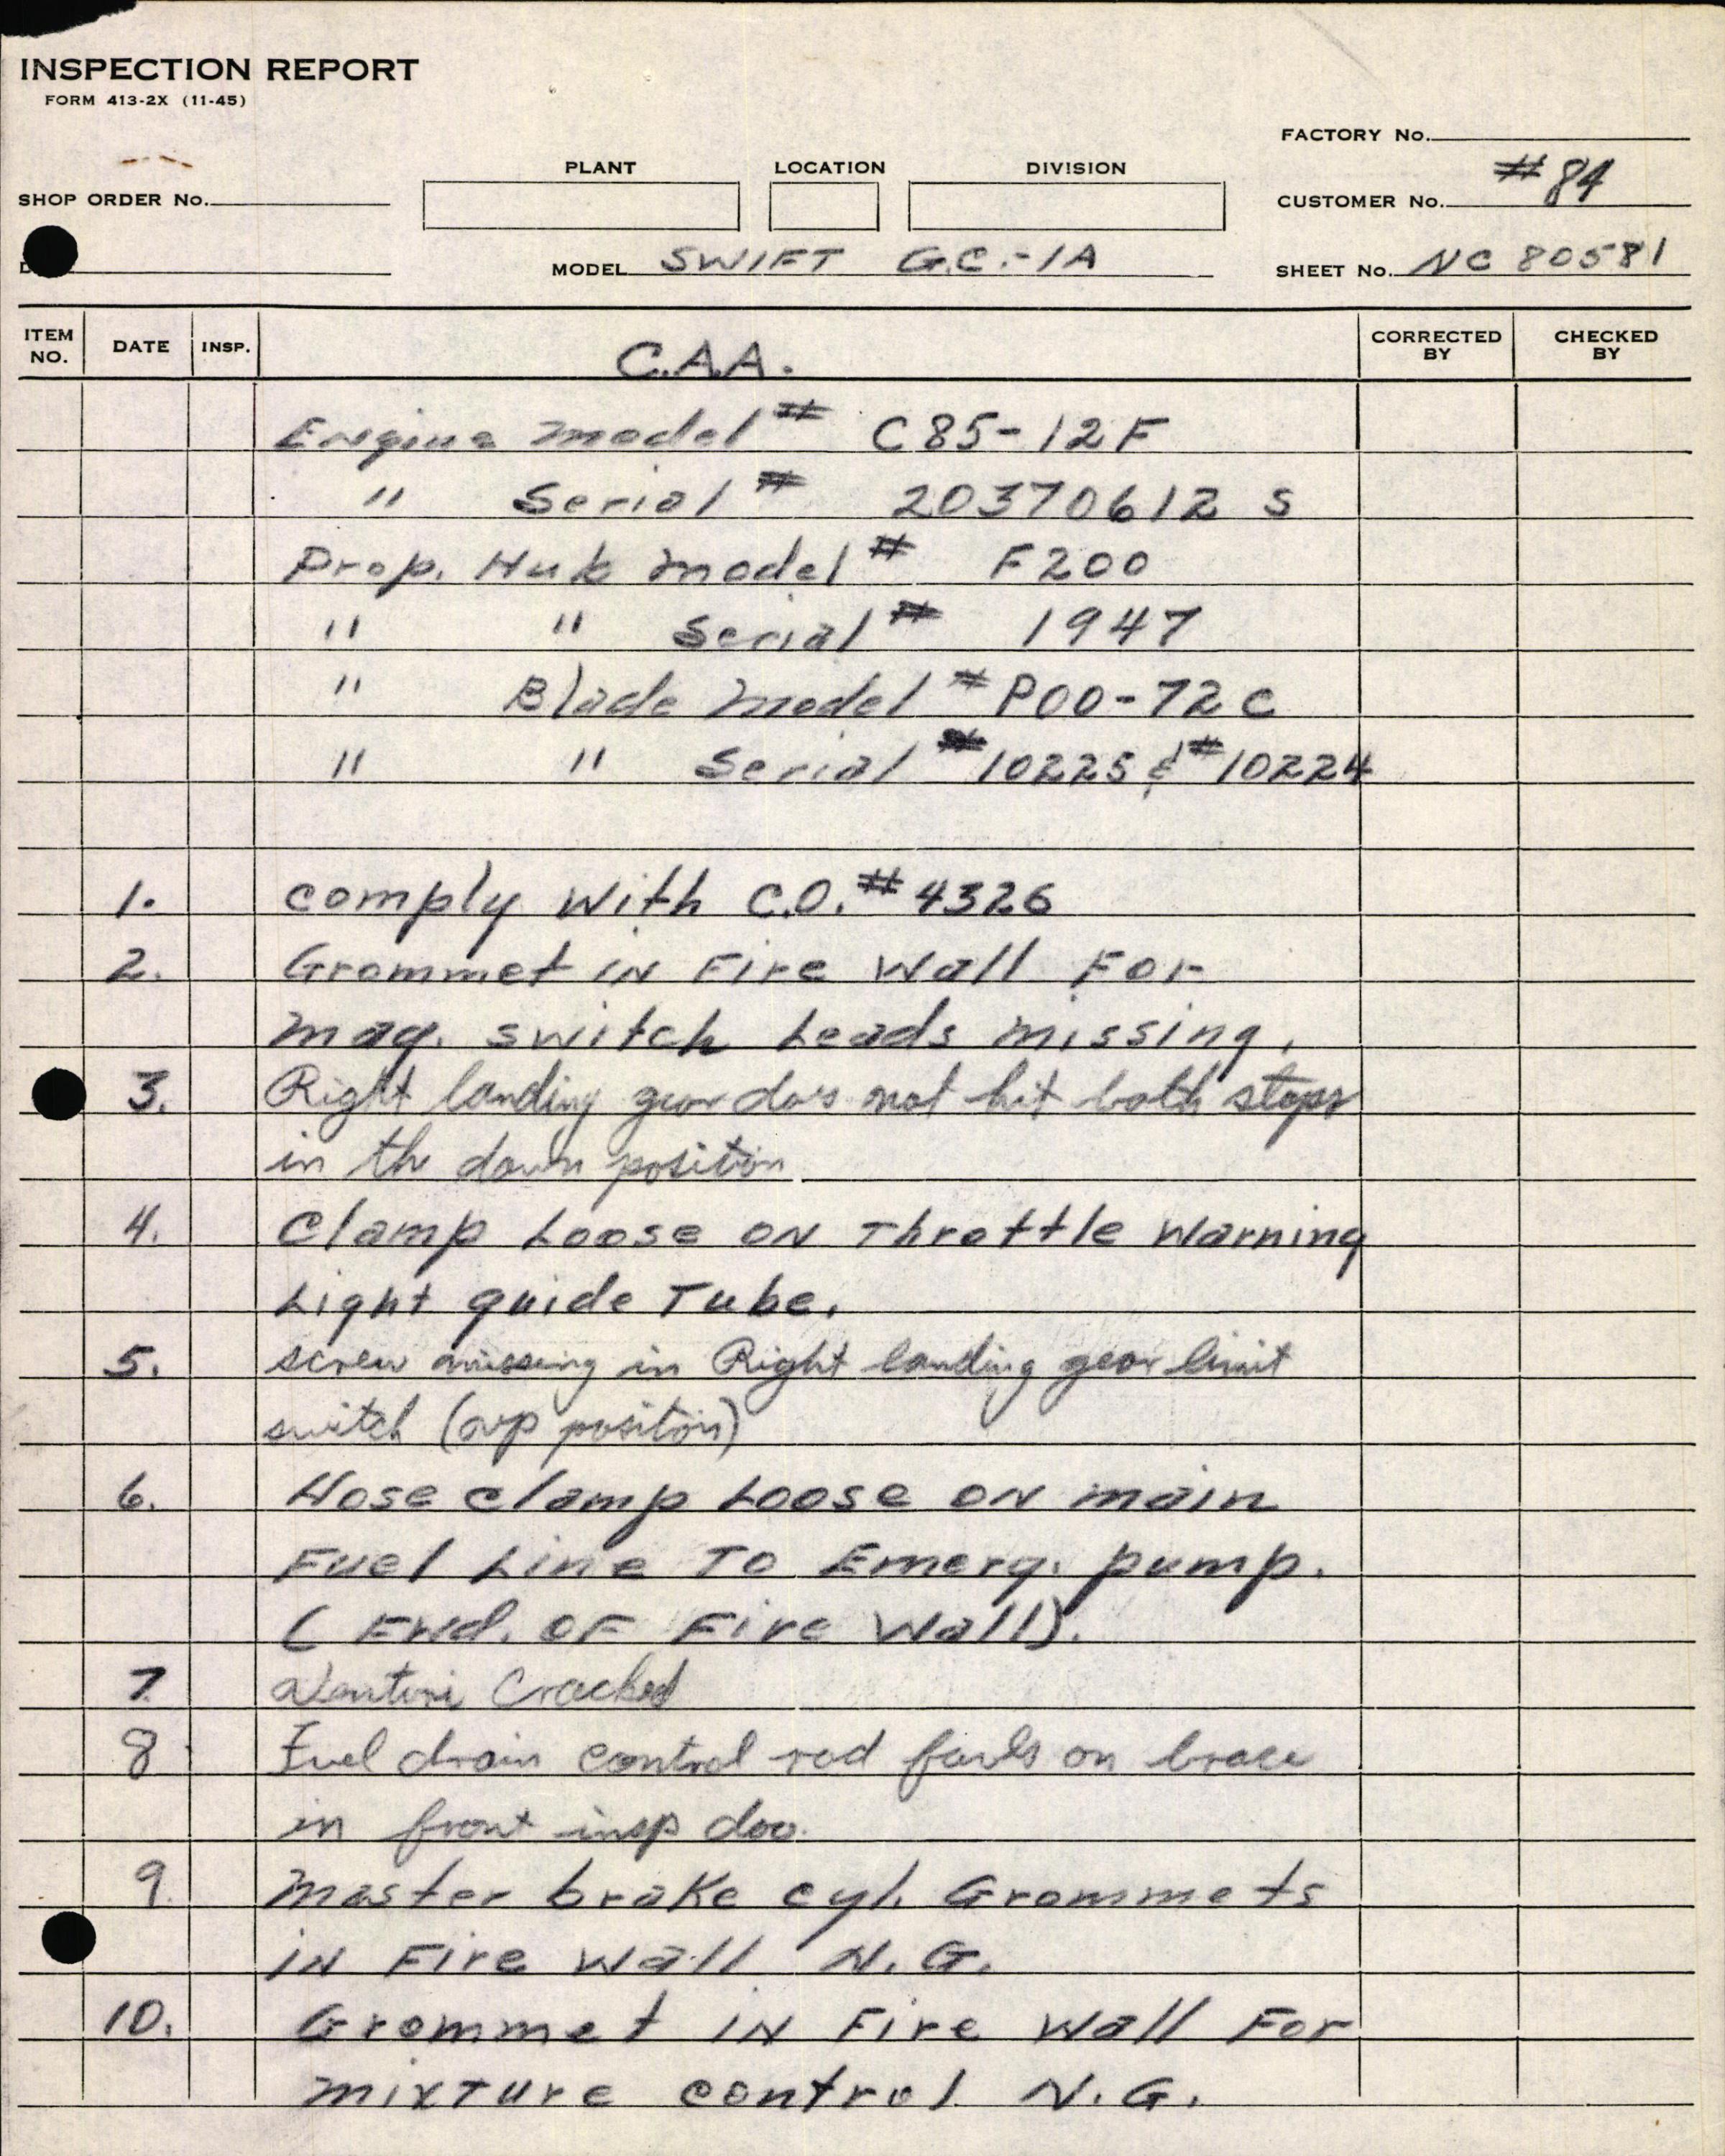 INSPECTION REPORT
FORM 413-2X (11-45)
FACTORY No.
PLANT LOCATION DIVISION
SHOP ORDER No. CUSTOMER No. #84
MODEL SWIFT G.C.-1A SHEET No. NC 80581
ITEM NO. DATE INSP. C.A.A. CORRECTED BY CHECKED BY
Engine Model # C85-12F
" Serial # 20370612 S
Prop. Hub Model # F200
" " Serial # 1947
" Blade Model # P00-72C
" " Serial #10225 & #10224
1. comply with C.O. # 4326
2. Grommet in Fire Wall For
mag. switch Leads missing.
3. Right landing gear does not hit both stops
in the down position
4. Clamp Loose on Throttle Warning
Light guide Tube.
5. screw missing in Right landing gear limit
switch (up position)
6. Hose clamp Loose on main
Fuel Line To Emerg. pump.
(Fwd. OF Fire Wall).
7. Venturi Cracked
8 Fuel drain control rod fouls on brace
in front insp doo.
9. Master brake cyl. Grommets
in Fire Wall N.G.
10. Grommet in Fire Wall For
mixture control N.G.